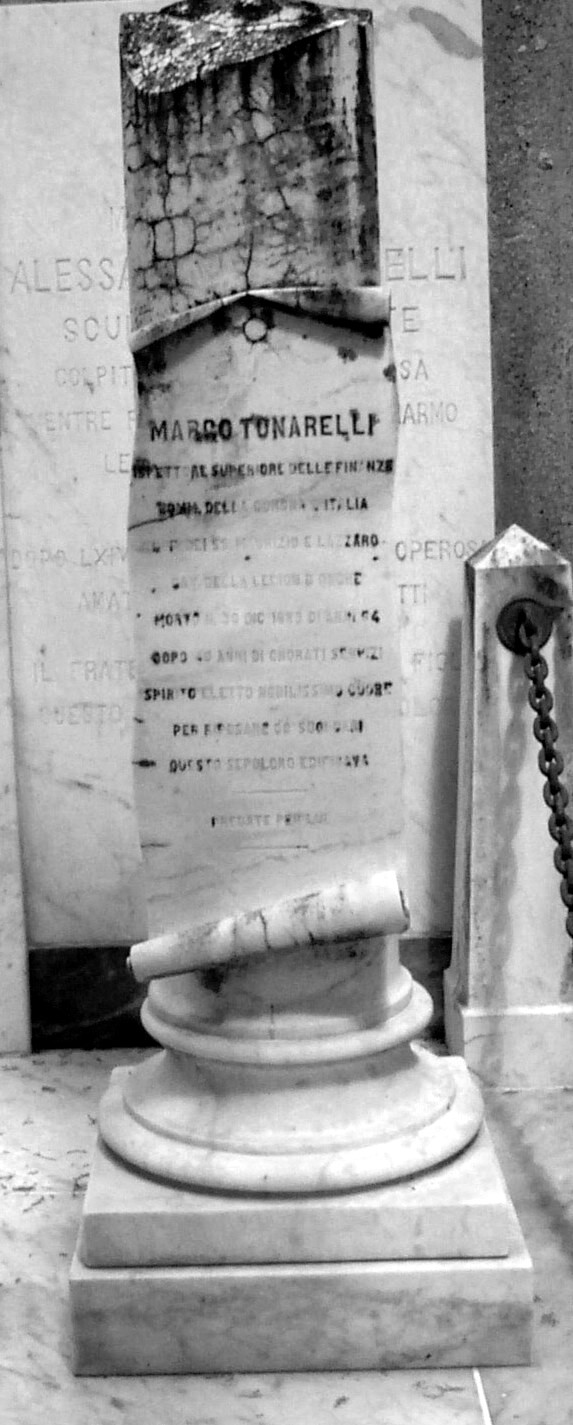 MARCO TONARELLI
ISPETTORE SUPERIORE DELLE FINANZE
COMM. DELLA CORONA D'ITALIA
DEI SS. MAURIZIO E LAZZARO
CAV. DELLA LEGION D'ONORE
MORTO IL 30 DIC. DI ANNI 64
DOPO 40 ANNI DI ONORATI SERVIZI
SPIRITO ELETTO NOBILISSIMO CUORE
PER RIPOSARE CO' SUOI CARI
QUESTO SEPOLCRO EDIFICAVA
PREGATE PER LUI
ALESSA ELLI
SCU TE
COLPIT SA
MENTRE MARMO
LE
DOPO OPEROSA
AMAT TTI
IL FRATE
QUESTO